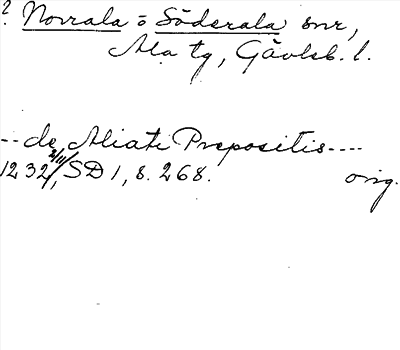 ? Norrala o Söderala snr,
Ala tg, Gävleb. l.
-- de Aliati Prepositis ----
1232 2/11, SD 1, s. 268. orig.